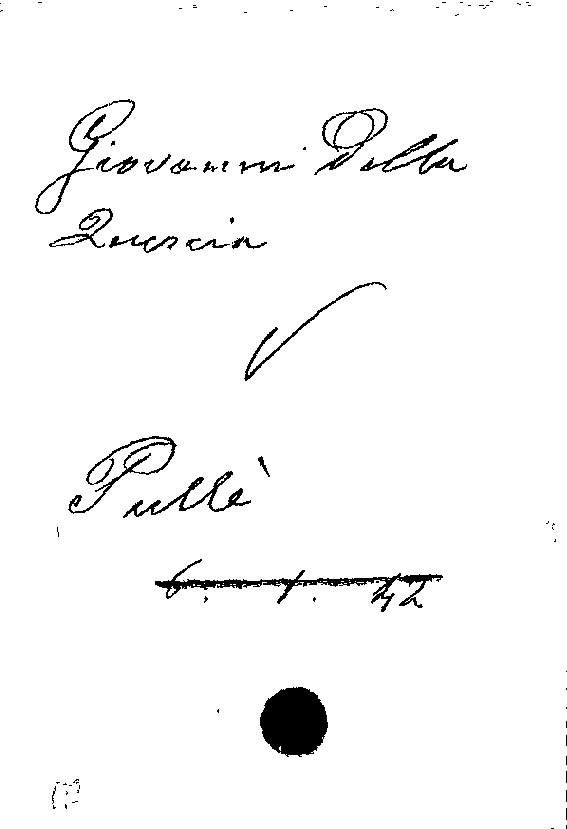 Giovanni Della
Quercia
Pullè
6. 1. 42